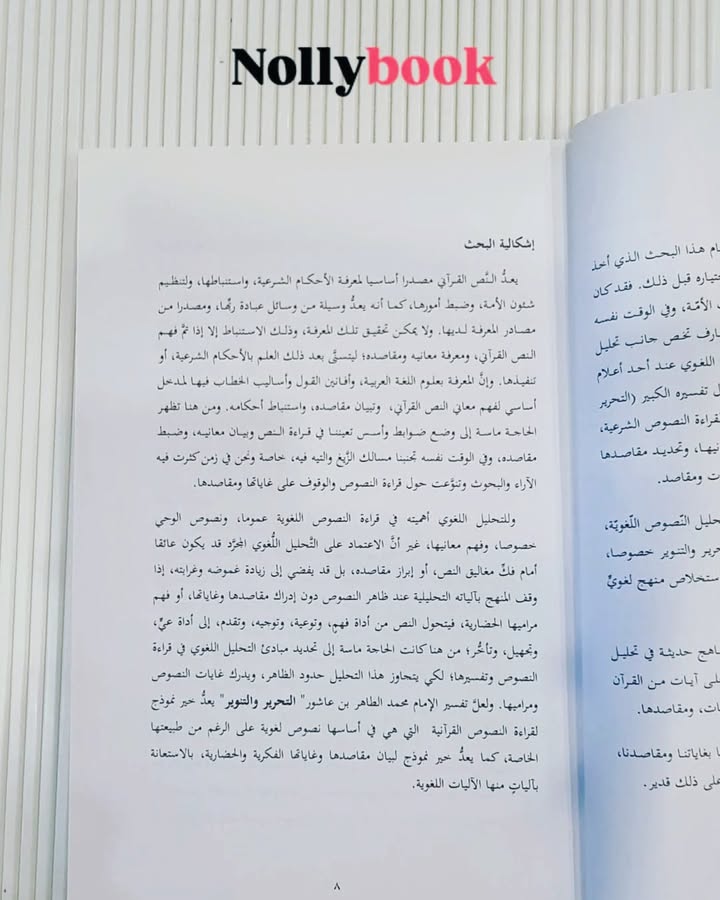 Nollybook
إشكالية البحث
يعدُّ النَّص القرآني مصدرا أساسيا لمعرفة الأحكام الشرعية، واستنباطها، ولتنظيم
شئون الأمة، وضبط أمورها، كما أنه يعدُّ وسيلة من وسائل عبادة ربِّها، ومصدرا من
مصادر المعرفة لديها. ولا يمكن تحقيق تلك المعرفة، وذلك الاستنباط إلا إذا تمَّ فهم
النص القرآني، ومعرفة معانيه ومقاصده؛ ليتسنَّى بعد ذلك العلم بالأحكام الشرعية، أو
تنفيذها. وإنَّ المعرفة بعلوم اللغة العربية، وأفانين القول وأساليب الخطاب فيها لمدخل
أساسي لفهم معاني النص القرآني، وتبيان مقاصده، واستنباط أحكامه. ومن هنا تظهر
الحاجة ماسة إلى وضع ضوابط وأسس تعيننا في قراءة النص وبيان معانيه، وضبط
مقاصده، وفي الوقت نفسه تجنبنا مسالك الزَّيغ والتيه فيه، خاصة ونحن في زمن كثرت فيه
الآراء والبحوث وتنوَّعت حول قراءة النصوص والوقوف على غاياتها ومقاصدها.
وللتحليل اللغوي أهميته في قراءة النصوص اللغوية عموما، ونصوص الوحي
خصوصا، وفهم معانيها، غير أنَّ الاعتماد على التَّحليل اللُّغوي المجرَّد قد يكون عائقا
أمام فكِّ مغاليق النص، أو إبراز مقاصده، بل قد يفضي إلى زيادة غموضه وغرابته، إذا
وقف المنهج بآلياته التحليلية عند ظاهر النصوص دون إدراك مقاصدها وغاياتها، أو فهم
مراميها الحضارية، فيتحول النص من أداة فهمٍ، وتوعية، وتوجيه، وتقدم، إلى أداة عيٍّ،
وتجهيل، وتأخُّر؛ من هنا كانت الحاجة ماسة إلى تحديد مبادئ التحليل اللغوي في قراءة
النصوص وتفسيرها؛ لكي يتجاوز هذا التحليل حدود الظاهر، ويدرك غايات النصوص
ومراميها. ولعلَّ تفسير الإمام محمد الطاهر بن عاشور" التحرير والتنوير" يعدُّ خير نموذج
لقراءة النصوص القرآنية التي هي في أساسها نصوص لغوية على الرغم من طبيعتها
الخاصة، كما يعدُّ خير نموذج لبيان مقاصدها وغاياتها الفكرية والحضارية، بالاستعانة
بآلياتٍ منها الآليات اللغوية.
٨
هذا البحث الذي أخذ
قبل ذلك. فقد كان
الأمّة، وفي الوقت نفسه
تخص جانب تحليل
اللغوي عند أحد أعلام
تفسيره الكبير (التحرير
النصوص الشرعية،
وتحديد مقاصدها
ومقاصد.
النّصوص اللّغويّة،
والتنوير خصوصا،
منهج لغويٍّ
حديثة في تحليل
آيات من القرآن
ومقاصدها.
بغاياتنا ومقاصدنا،
على ذلك قدير.